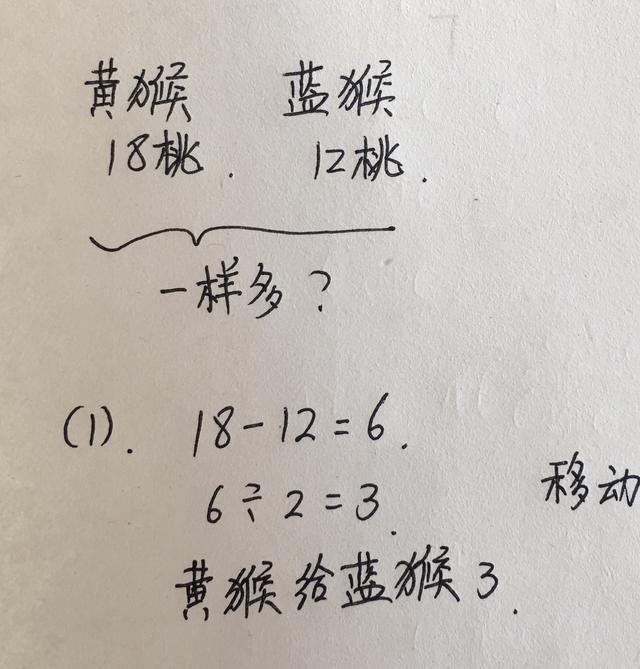 黄猴 蓝猴
18桃. 12桃.
一样多?
(1). 18-12=6.
6÷2=3.
移动
黄猴给蓝猴3.